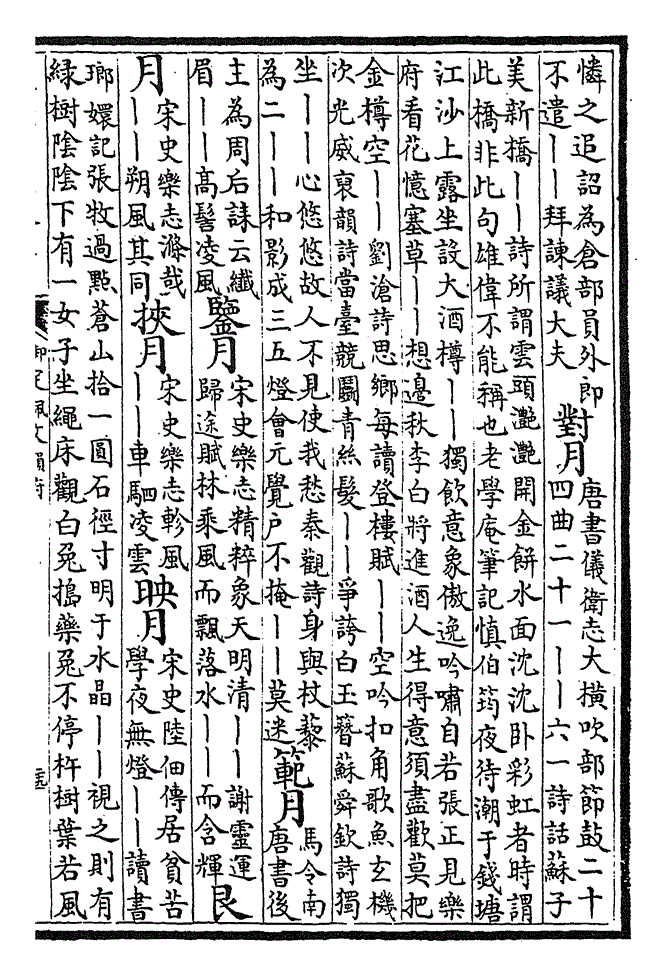 憐之追詔為倉部員外郎
不遣〡〡拜諫議大夫
對月
唐書儀衛志大横吹部節鼓二十
四曲二十一〡〡六一詩話蘇子
美新橋〡〡詩所謂雲頭灔灔開金餅水面沈沈卧彩虹者時謂
此橋非此句雄偉不能稱也老學庵筆記慎伯筠夜待潮于錢塘
江沙上露坐設大酒樽〡〡獨飲意象傲逸吟嘯自若張正見樂
府看花憶塞草〡〡想邊秋李白將進酒人生得意須盡歡莫把
金樽空〡〡劉滄詩思鄉每讀登樓賦〡〡空吟扣角歌魚玄機
次光威裒韻詩當臺競鬭青絲髮〡〡爭誇白玉簪蘇舜欽詩獨
坐〡〡心悠悠故人不見使我愁秦觀詩身與杖藜
為二〡〡和影成三五燈會元覺户不掩〡〡莫迷
範月
馬令南
唐書後
主為周后誄云纖
眉〡〡髙髻凌風
鑒月
宋史樂志精粹象天明清〡〡謝靈運
歸途賦林乘風而飄落水〡〡而含輝
艮
月
宋史樂志滌哉
〡〡朔風其同
挾月
宋史樂志軫風
〡〡車駟凌雲
映月
宋史陸佃傳居貧苦
學夜無燈〡〡讀書
瑯嬛記張牧過點蒼山拾一圓石徑寸明于水晶〡〡視之則有
緑樹陰陰下有一女子坐繩床觀白兔搗藥兔不停杵樹葉若風
御定佩文韻府